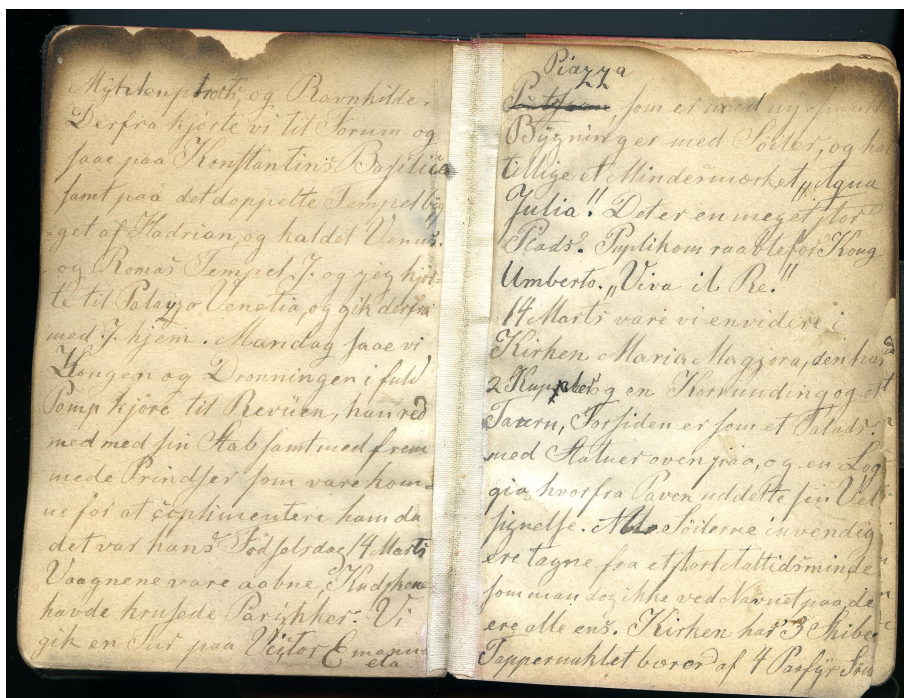 og Ravnhilde.
Derfra kjørte vi til Forum og
saae paa Konstantins Basilica
samt paa det doppelte Tempel byg
=get af Hadrian, og kaldet Venus.
og Romas Tempel J. og jeg kjør-
te til Palazzo Venetia, og gik derfra
med J. hjem. Mandag saae vi
Kongen og Dronningen i fuld
Pomp kjöre til Revuen, han red
med med sin Stab samt med frem
mede Prindser som vare kom-
ne for at complimentere ham da
det var hans Födselsdag 14 Marts
Vaagnene vare aabne, Kudskene
havde krusede Parÿkker. Vi
gik en Tur paa Victor Emanu-
ela
Piazza
som er med
Bÿgninger med Söiler, og har
tillige et Mindermærket "Aqua
Julia". Det er en meget stor
Plads. Puplikom raabte for Kong
Umberto. "Viva il Re."
14 Marts vare vi envidere i
Kirken Maria Magzora, den har
2 Kuppler og en Korrunding og et
Taarn, Forsiden er som et Palads.
med Statuer ovenpaa, og en Log
gia hvorfra Paven uddelte sin Vel
signelse. Alle Söilerne invendig
ere tagne fra et stort Oldtidsminde
som man dog ikke ved Navnet paa, de
ere alle ens. Kirken har 3 Skibe
Tappernaklet bæres af 4 Porfÿr Söil